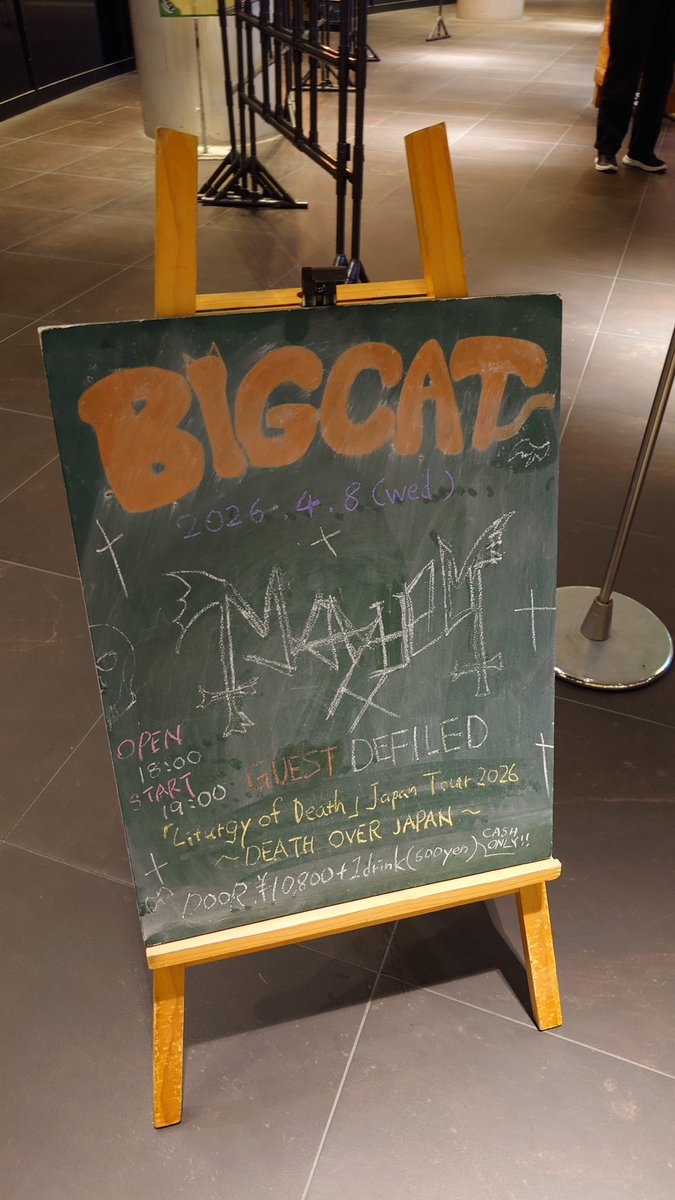 BIGCAT
2026.4.8 (wed)
MAYHEM
OPEN
18:00
START
19:00
GUEST DEFILED
「Liturgy of Death」Japan Tour 2026
～DEATH OVER JAPAN～
DOOR ¥10,800+1drink(600yen) CASH ONLY!!